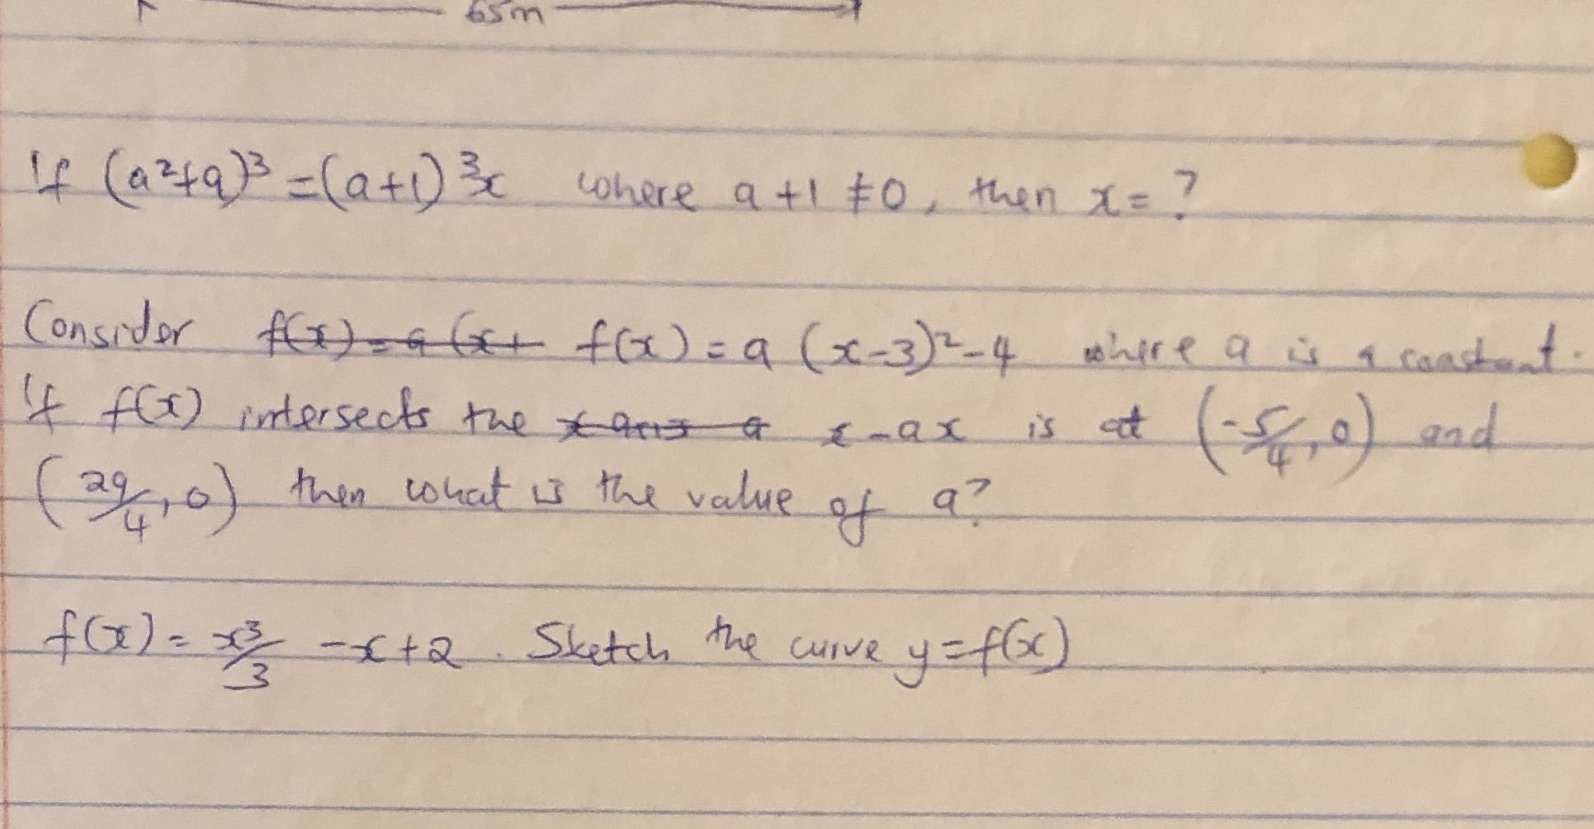 65m
If (a²+a)³ = (a+1)³x where a+1 ≠ 0, then x = ?
Consider f(x) = a (x+ f(x) = a (x-3)²-4 where a is a constant.
If f(x) intersects the x axis a x-ax is at (-5/4, 0) and
(29/4, 0) then what is the value of a?
f(x) = x³/3 - x + 2. Sketch the curve y = f(x)